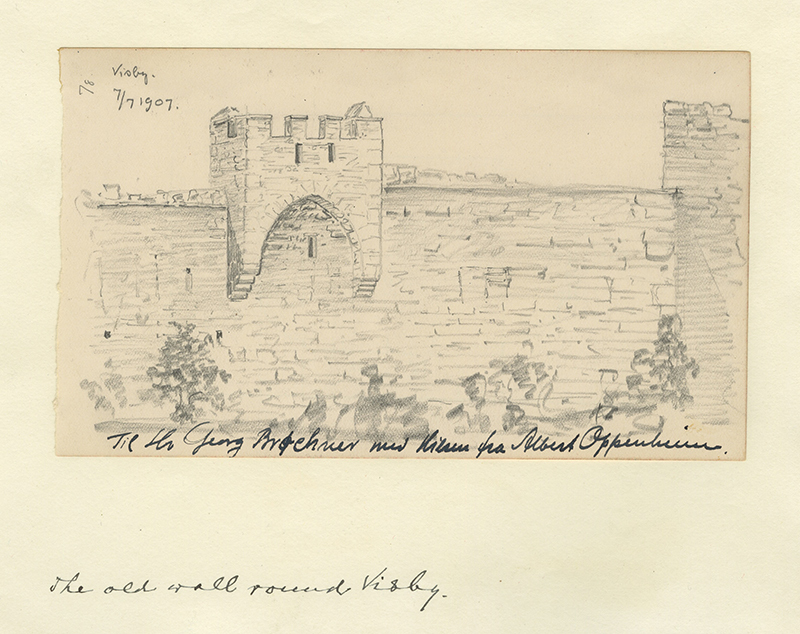 78
Visby.
7/7 1907.
Til Hr Georg Bröchner med Hilsen fra Albert Oppenheim.
The old wall round Visby.